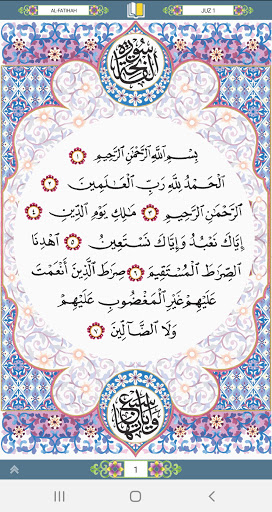 AL-FATIHAH
JUZ 1
سورة الفاتحة
بِسْمِ ٱللَّهِ ٱلرَّحْمَٰنِ ٱلرَّحِيمِ ١
ٱلْحَمْدُ لِلَّهِ رَبِّ ٱلْعَٰلَمِينَ ٢
ٱلرَّحْمَٰنِ ٱلرَّحِيمِ ٣ مَٰلِكِ يَوْمِ ٱلدِّينِ ٤
إِيَّاكَ نَعْبُدُ وَإِيَّاكَ نَسْتَعِينُ ٥ ٱهْدِنَا
ٱلصِّرَٰطَ ٱلْمُسْتَقِيمَ ٦ صِرَٰطَ ٱلَّذِينَ أَنْعَمْتَ
عَلَيْهِمْ غَيْرِ ٱلْمَغْضُوبِ عَلَيْهِمْ
وَلَا ٱلضَّآلِّينَ ٧
وآياتها سبع
1